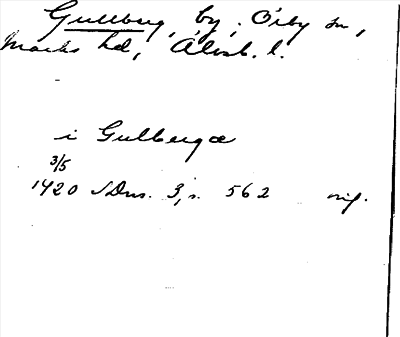 Gullberg, by, Örby sn,
Marks hd, Älvsb. l.
i Gulbergæ
3/5
1420 SDns. 3, s. 562 orig.